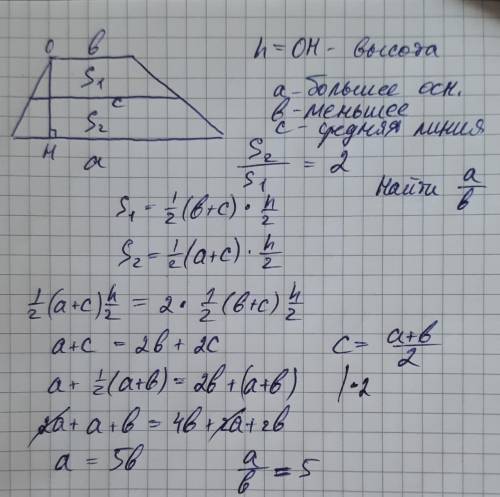 O в
h = OH - высота
S₁
a - большее осн.
в - меньшее
c
c - средняя линия
S₂
H
a
S₂/S₁ = 2
Найти a/в
S₁ = 1/2 (в+c) · h/2
S₂ = 1/2 (a+c) · h/2
1/2 (a+c) h/2 = 2 · 1/2 (в+c) h/2
a+c = 2в + 2c
c = (a+в)/2
a + 1/2 (a+в) = 2в + (a+в) | · 2
2a + a + в = 4в + 2a + 2в
a = 5в a/в = 5